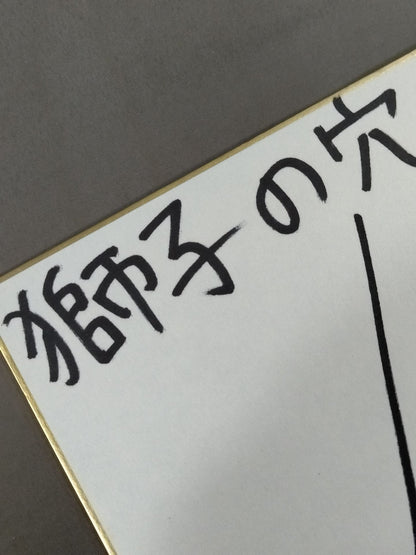 獅子の穴